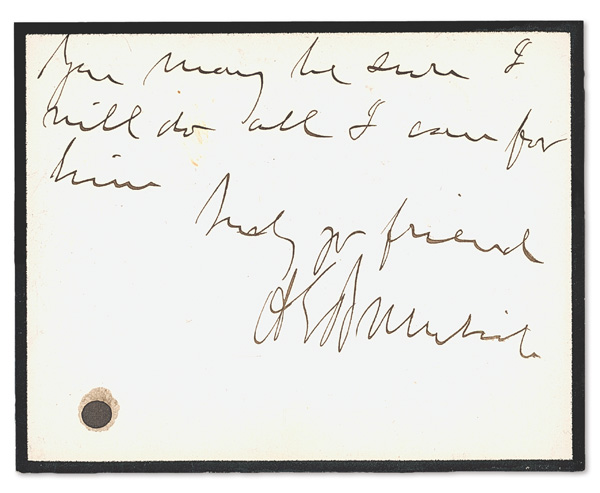 You may be sure I
will do all I can for
him
Truly yr friend
A E Burnside